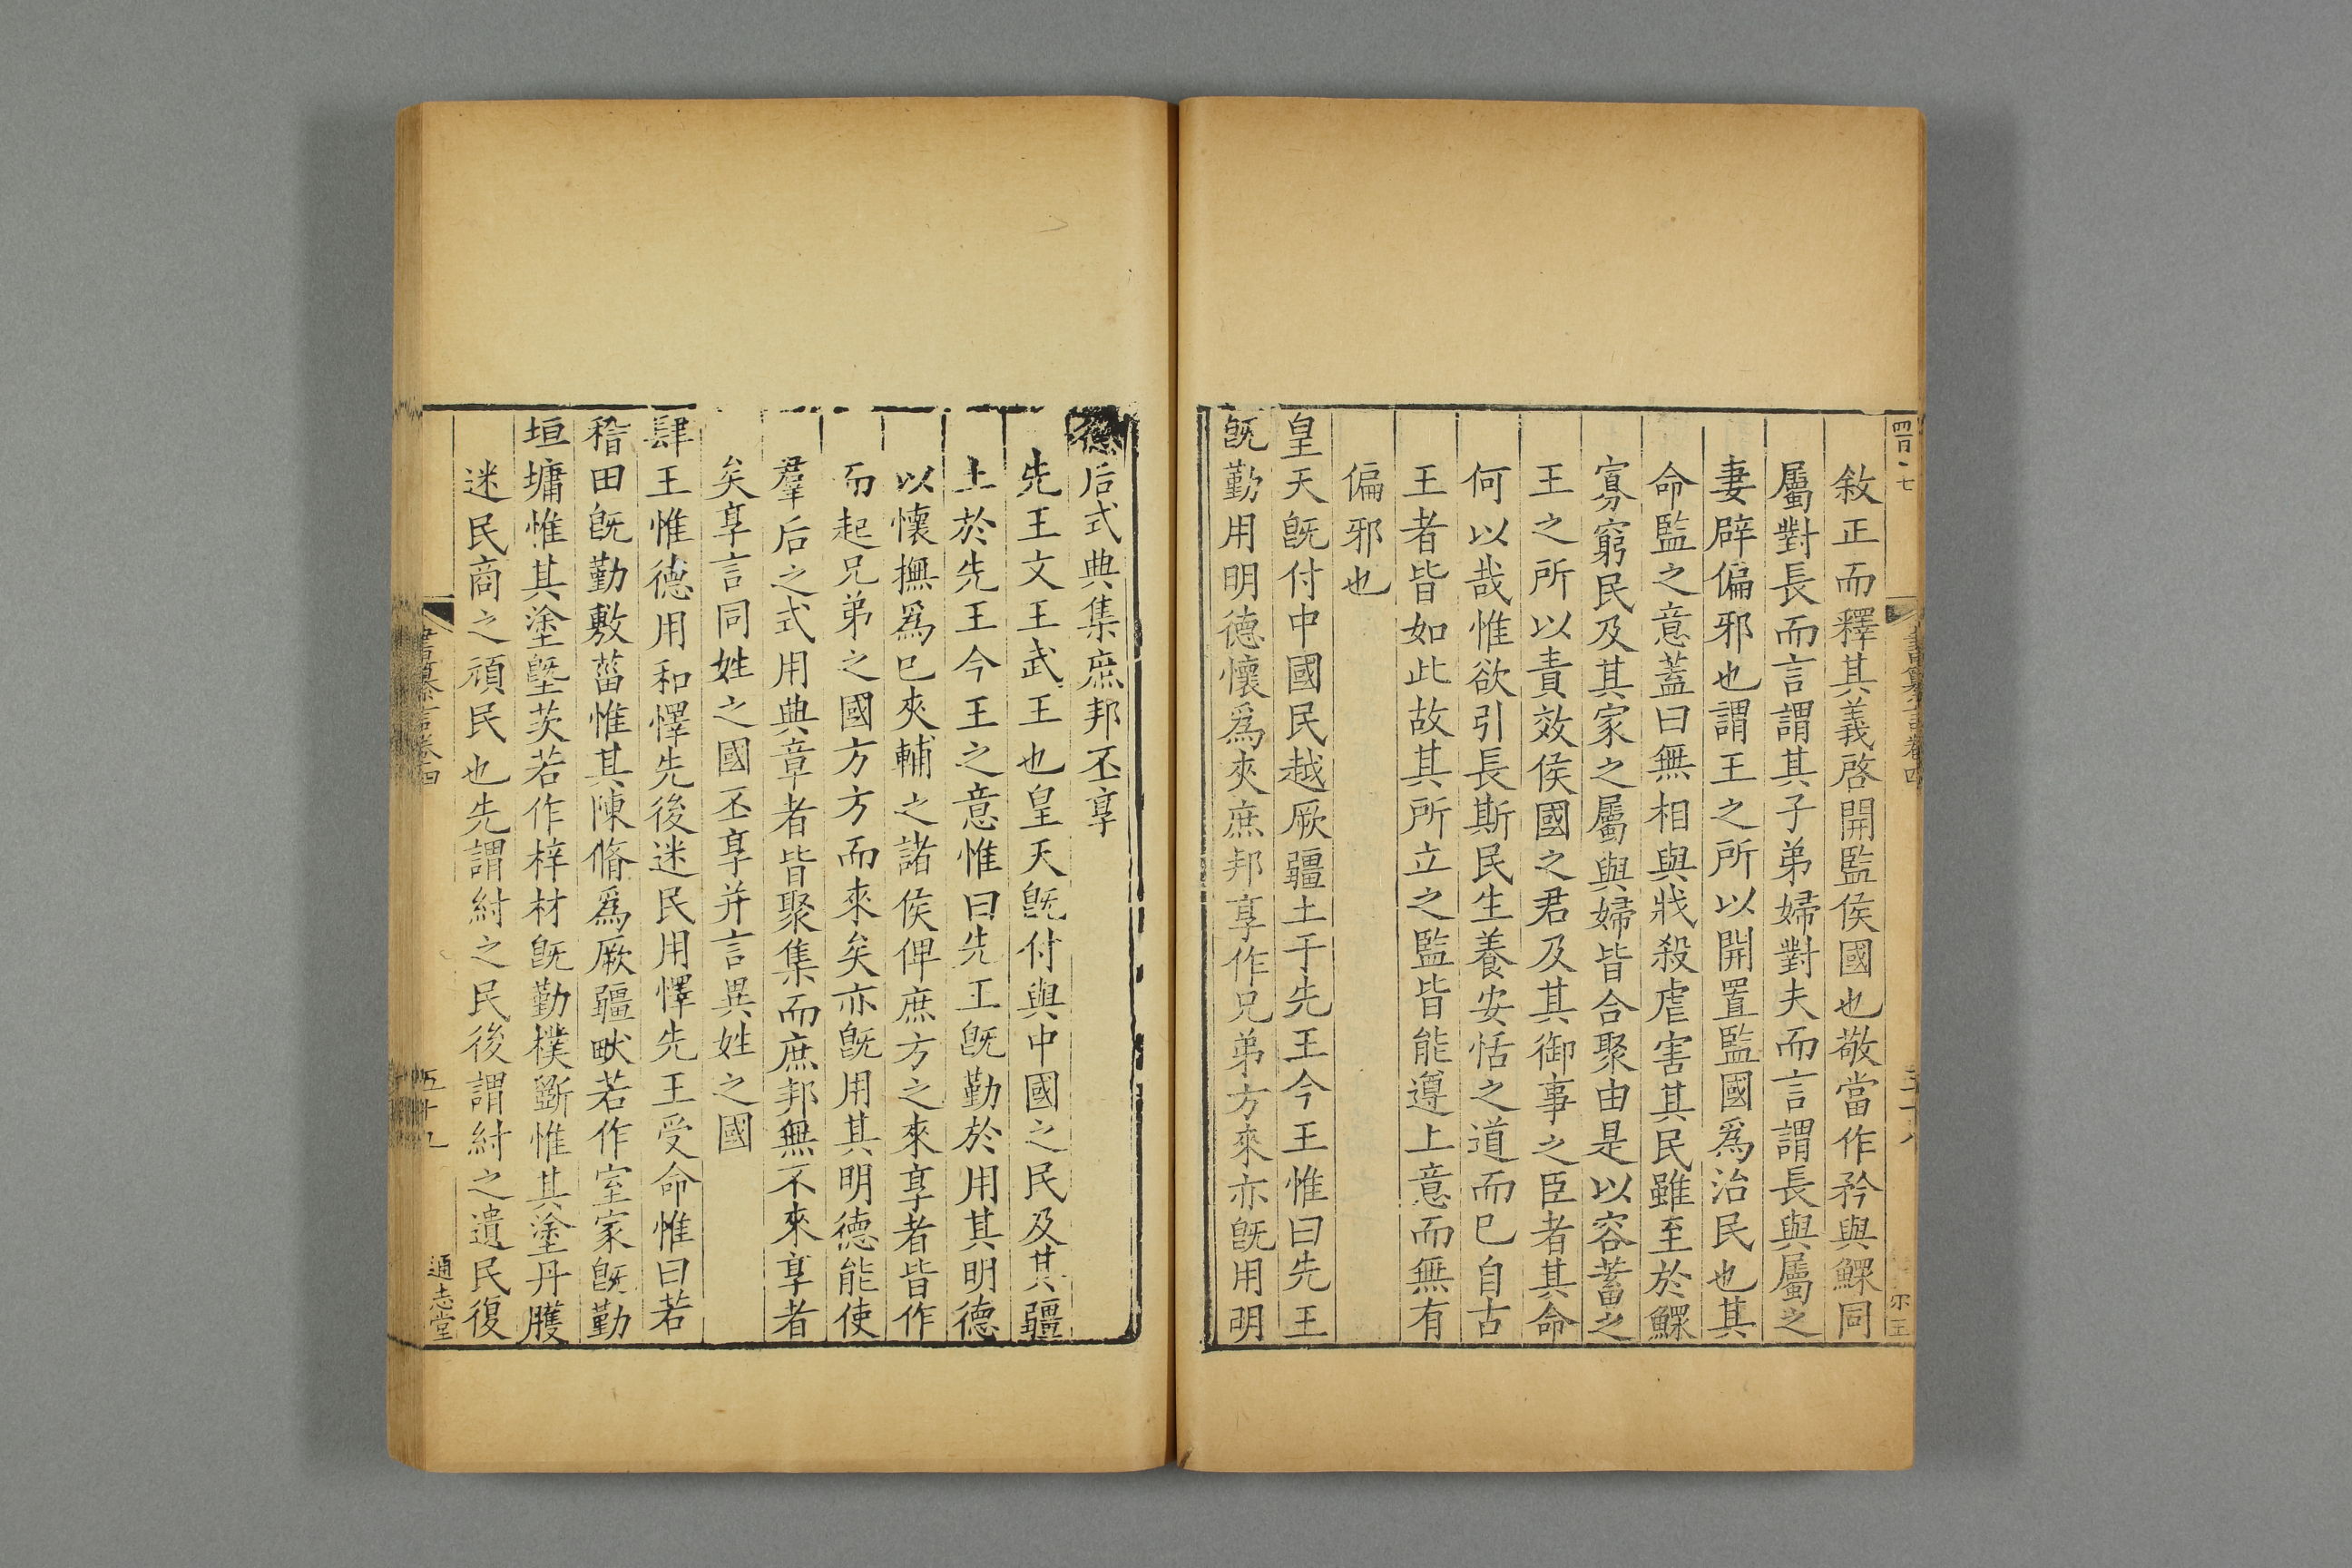 敘正而釋其義啓開監侯國也敬當作矜與鰥同
屬對長而言謂其子弟婦對夫而言謂長與屬之
妻辟偏邪也謂王之所以開置監國爲治民也其
命監之意蓋曰無相與戕殺虐害其民雖至於鰥
寡窮民及其家之屬與婦皆合聚由是以容蓄之
王之所以責效侯國之君及其御事之臣者其命
何以哉惟欲引長斯民生養安恬之道而已自古
王者皆如此故其所立之監皆能遵上意而無有
偏邪也
皇天旣付中國民越厥疆土于先王今王惟曰先王
旣勤用明德懷爲夾庶邦享作兄弟方來亦旣用明
德后式典集庶邦丕享
先王文王武王也皇天旣付與中國之民及其疆
土於先王今王之意惟曰先王旣勤於用其明德
以懷撫爲已夾輔之諸侯俾庶方之來享者皆作
而起兄弟之國方方而來矣亦旣用其明德能使
羣后之式用典章者皆聚集而庶邦無不來享者
矣享言同姓之國丕享并言異姓之國
肆王惟德用和懌先後迷民用懌先王受命惟曰若
稽田旣勤敷菑惟其陳脩爲厥疆畎若作室家旣勤
垣墉惟其塗墍茨若作梓材旣勤樸斲惟其塗丹雘
迷民商之頑民也先謂紂之民後謂紂之遺民復
書纂言卷四
五十九
通志堂